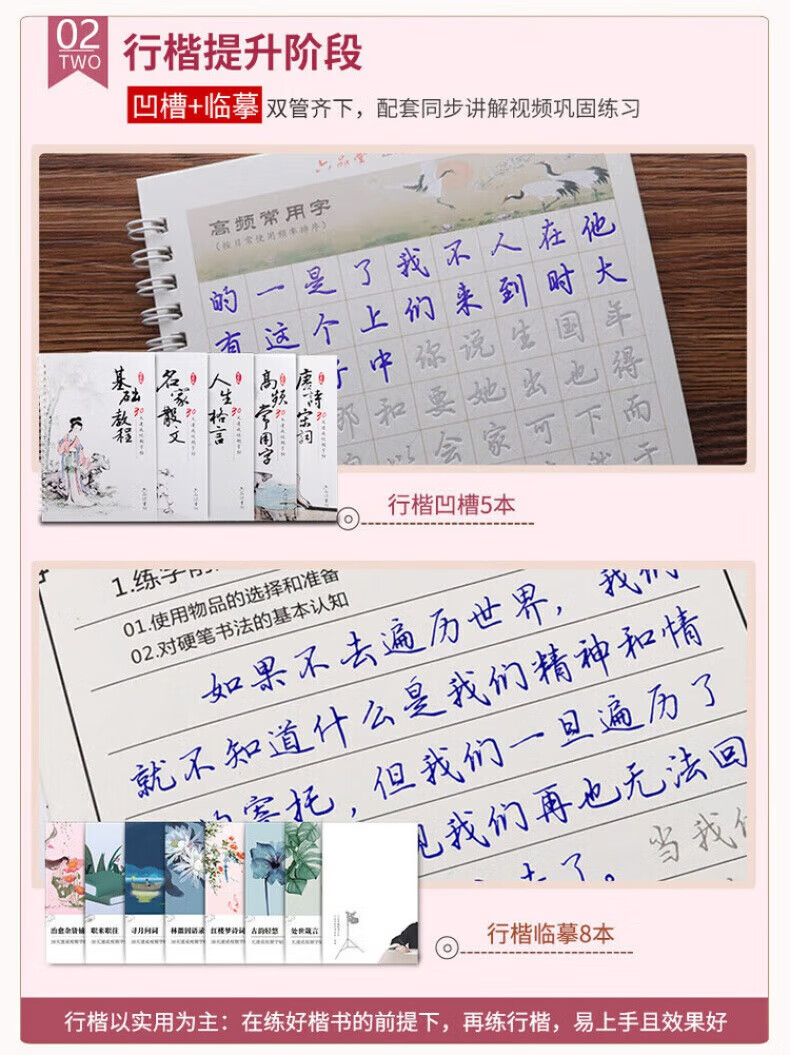 02
TWO
行楷提升阶段
凹槽+临摹 双管齐下，配套同步讲解视频巩固练习
六品堂
高频常用字
（按日常使用频率排序）
的一是了我不人在他
有这个上们来到时大
中你说生国年
那和要她出也得
以会家可下而
基础教程
名家散文
人生格言
高频常用字
唐诗宋词
行楷凹槽5本
01.使用物品的选择和准备
02.对硬笔书法的基本认知
如果不去遍历世界，我们
就不知道什么是我们精神和情
寄托，但我们一旦遍历了
我们再也无法回
当我们
治愈杂货铺
职来职往
寻月问词
林徽因语录
红楼梦诗词
古韵轻愁
处世箴言
行楷临摹8本
行楷以实用为主：在练好楷书的前提下，再练行楷，易上手且效果好